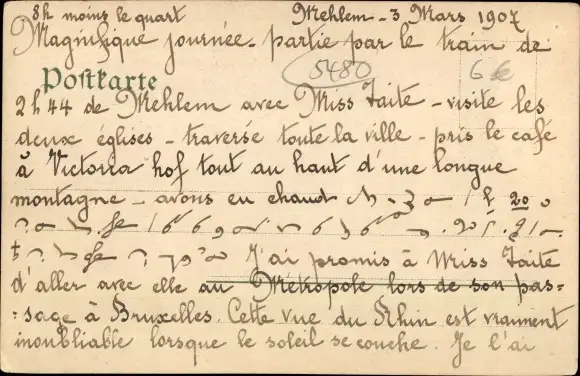 8h moins le quart Mehlem - 3 Mars 1907
Magnifique journée - partie par le train de
5480 6€
Postkarte
2h44 de Mehlem avec Miss Taite - visité les
deux églises - traversé toute la ville - pris le café
à Victoria hof tout au haut d'une longue
montagne - avons eu chaud
J'ai promis à Miss Taite
d'aller avec elle au Métropole lors de son pas=
=sage à Bruxelles. Cette vue du Rhin est vraiment
inoubliable lorsque le soleil se couche. Je l'ai